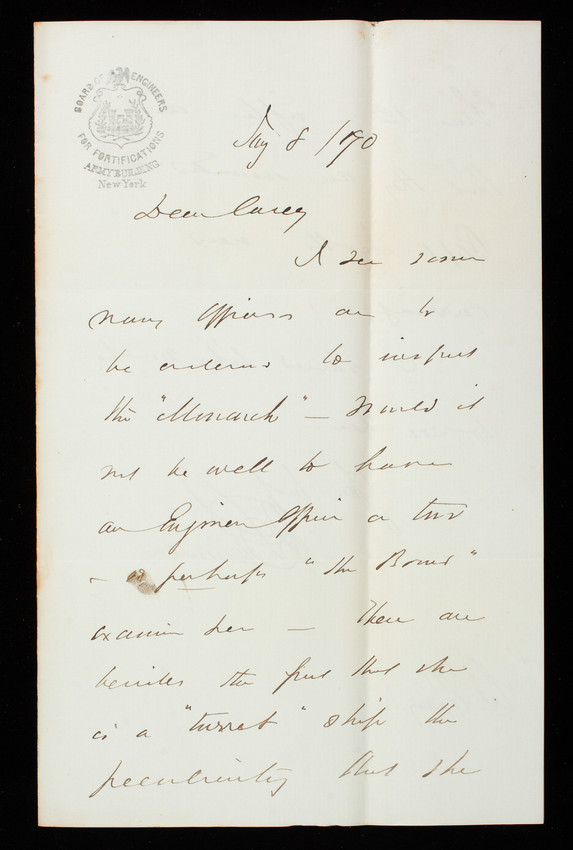 BOARD OF ENGINEERS
FOR FORTIFICATIONS
ARMY BUILDING
New York
Jay 8 /70
Dear Casey
I see some
navy officers are to
be ordered to inspect
the "Monarch" — would it
not be well to have
an Engineer Officer or two
- or perhaps "the Board"
examine her — There are
besides the fact that she
is a "turret" ship the
peculiarity that she